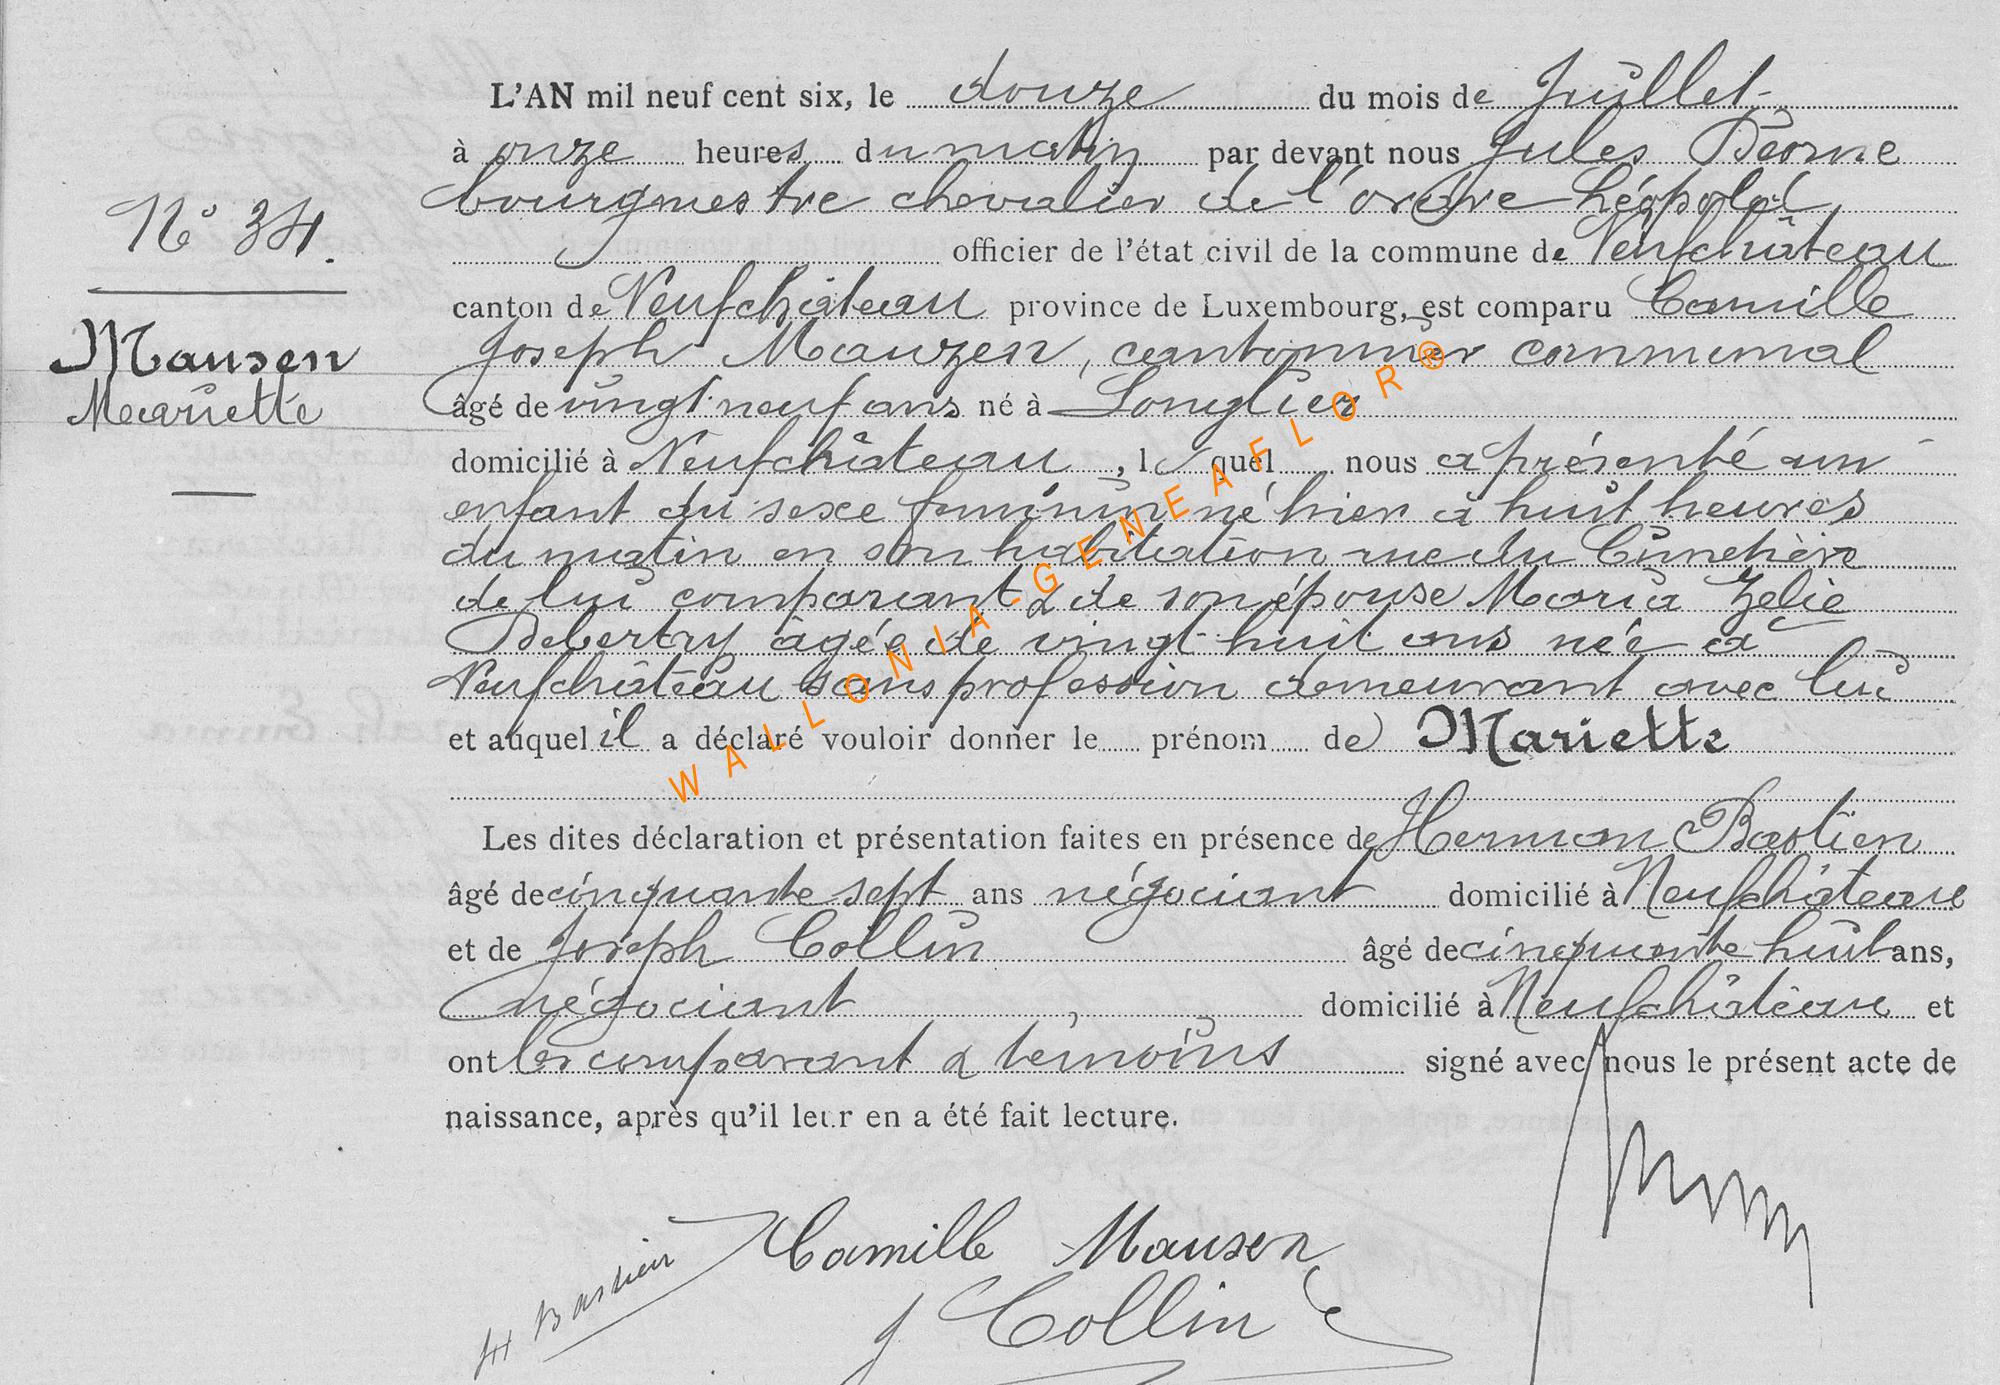 L'AN mil neuf cent six, le douze du mois de Juillet
à onze heures du matin par devant nous Jules
bourgmestre chevalier de l'ordre Léopold
officier de l'état civil de la commune de Neufchâteau
N° 34.
canton de Neufchâteau province de Luxembourg, est comparu Camille
Joseph Mauzen, cantonnier communal
Mausen
Mariette
âgé de vingt neuf ans né à Longlier
domicilié à Neufchâteau, l quel nous a présenté un
enfant du sexe feminin né hier à huit heures
du matin en son habitation rue du Cimetière
de lui comparant & de son épouse Maria Zelie
Debertry âgée de vingt-huit ans née à
Neufchâteau sans profession demeurant avec lui
et auquel il a déclaré vouloir donner le prénom de Mariette
Les dites déclaration et présentation faites en présence de Herman Bastien
âgé de cinquante sept ans négociant domicilié à Neufchâteau
et de Joseph Collin âgé de cinquante huit ans,
négociant, domicilié à Neufchâteau et
ont les comparant & témoins signé avec nous le présent acte de
naissance, après qu'il leur en a été fait lecture.
H Bastien
Camille Mausen
J Collin
WALLONIA-GENEAFLOR®